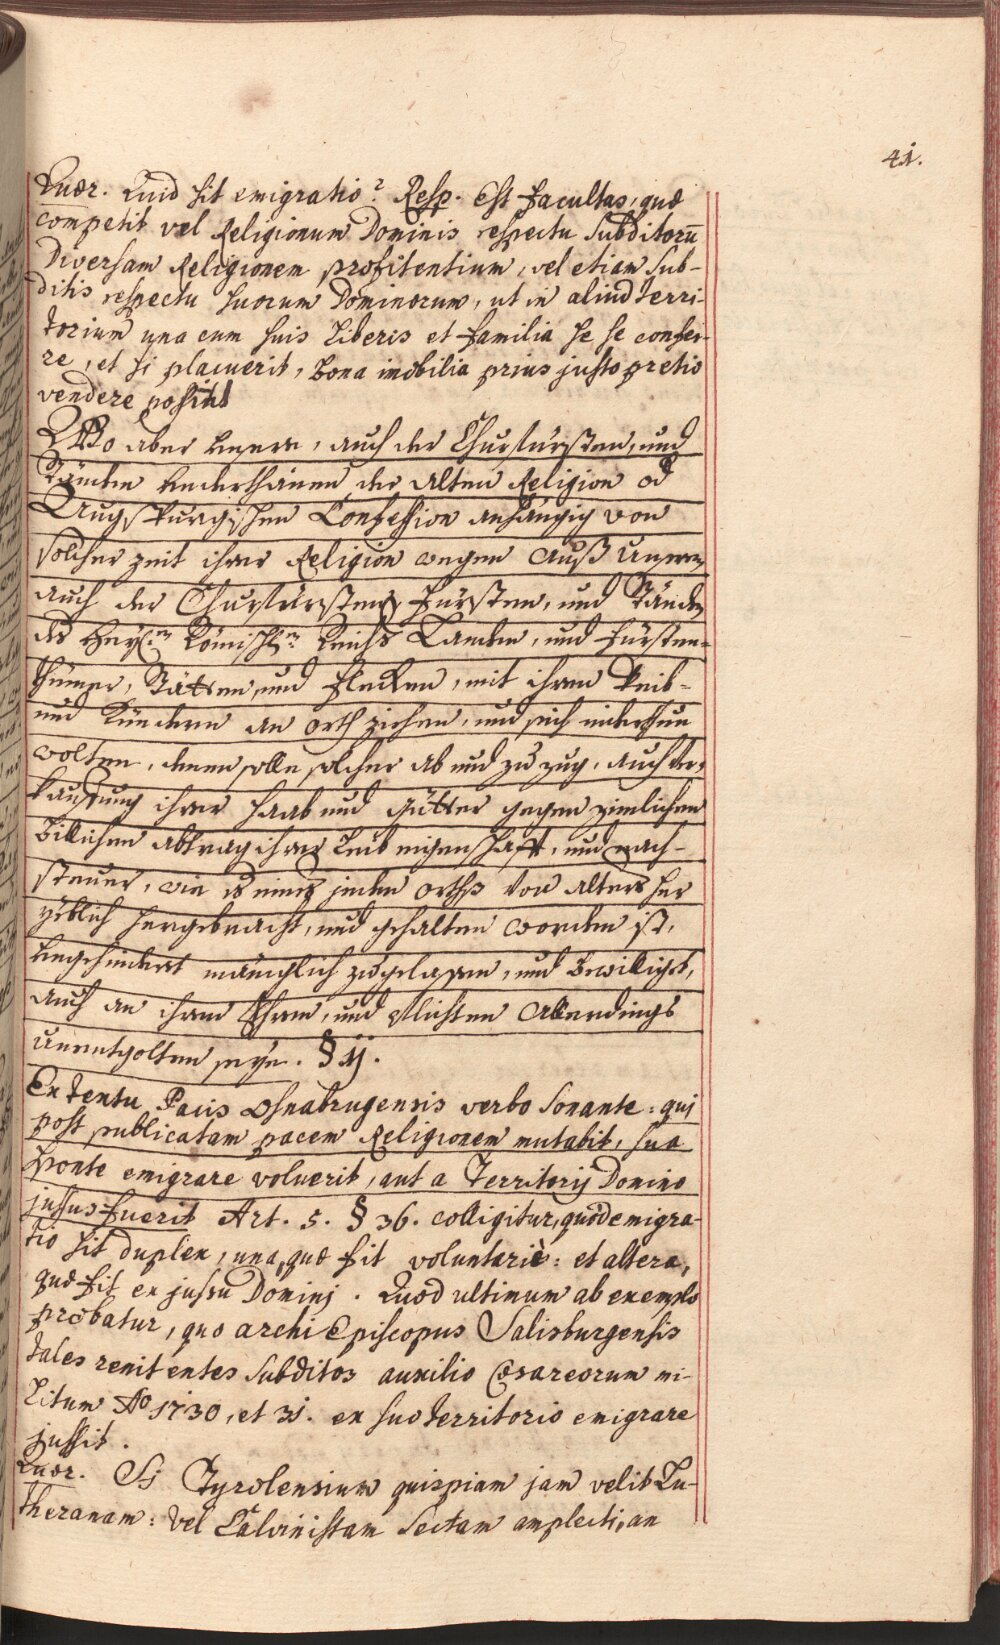 41.
Quær. Quid sit emigratio? Resp. Est facultas, quæ
competit vel Religionum Dominis respectu subditorū
Diversam Religionem profitentium, vel etiam sub-
ditis respectu suorum Dominorum, ut in aliud terri-
torium una cum suis Liberis et familia se se confer-
re, et si placuerit, Bona imobilia prius justo pretio
vendere possint
Wo aber unsere, auch der Churfürsten, und
Ständen underthanen der Alten Religion od
Augspurgischen Confession anhängig von
solcher zeit ihrer Religion wegen auß Unsern
auch der Churfürsten, Fürsten, und Stände
des Heyl:n Römischl:n Reichs Landen, und Fürsten-
thümer, Stätten, und Flecken, mit ihren Weib-
und Kündern an orth ziehen, und sich niderthun
wolten, denen solle solcher ab und zu zug, auch ver-
kauffung ihrer Haab und Gütter gegen zimlichen
Billichen abtrag ihrer Leib eigenschafft, und nach-
steuer, wie es eines jeden orths von alters her
yeblich hergebracht, und gehalten worden ist,
ungehindert mänighlich zugelassen, und Bewilliget,
auch an ihren Ehren, und pflichten allerdings
unentgolten seye. § ij.
Ex tentu Pacis Osnabrugensis verbo sonante: qui
post publicatam pacem Religionem mutabit, sua
sponte emigrare voluerit, aut a Territorij Domino
jussus fuerit Art. 5. § 36. colligitur, quod emigra-
tio sit duplex, una, quæ fit voluntariè: et altera,
quæ fit ex jussu Dominj. Quod ultimum ab exemplo
probatur, quo archi Episcopus Salisburgensis
tales renitentes subditos auxilio Cæsareorum mi-
litum Ao 1730, et 31. ex suo territorio emigrare
jussit.
Quær. Si Tyrolensium quispiam jam velit Lu-
theranam: vel Calvinistam Sectam amplecti, an